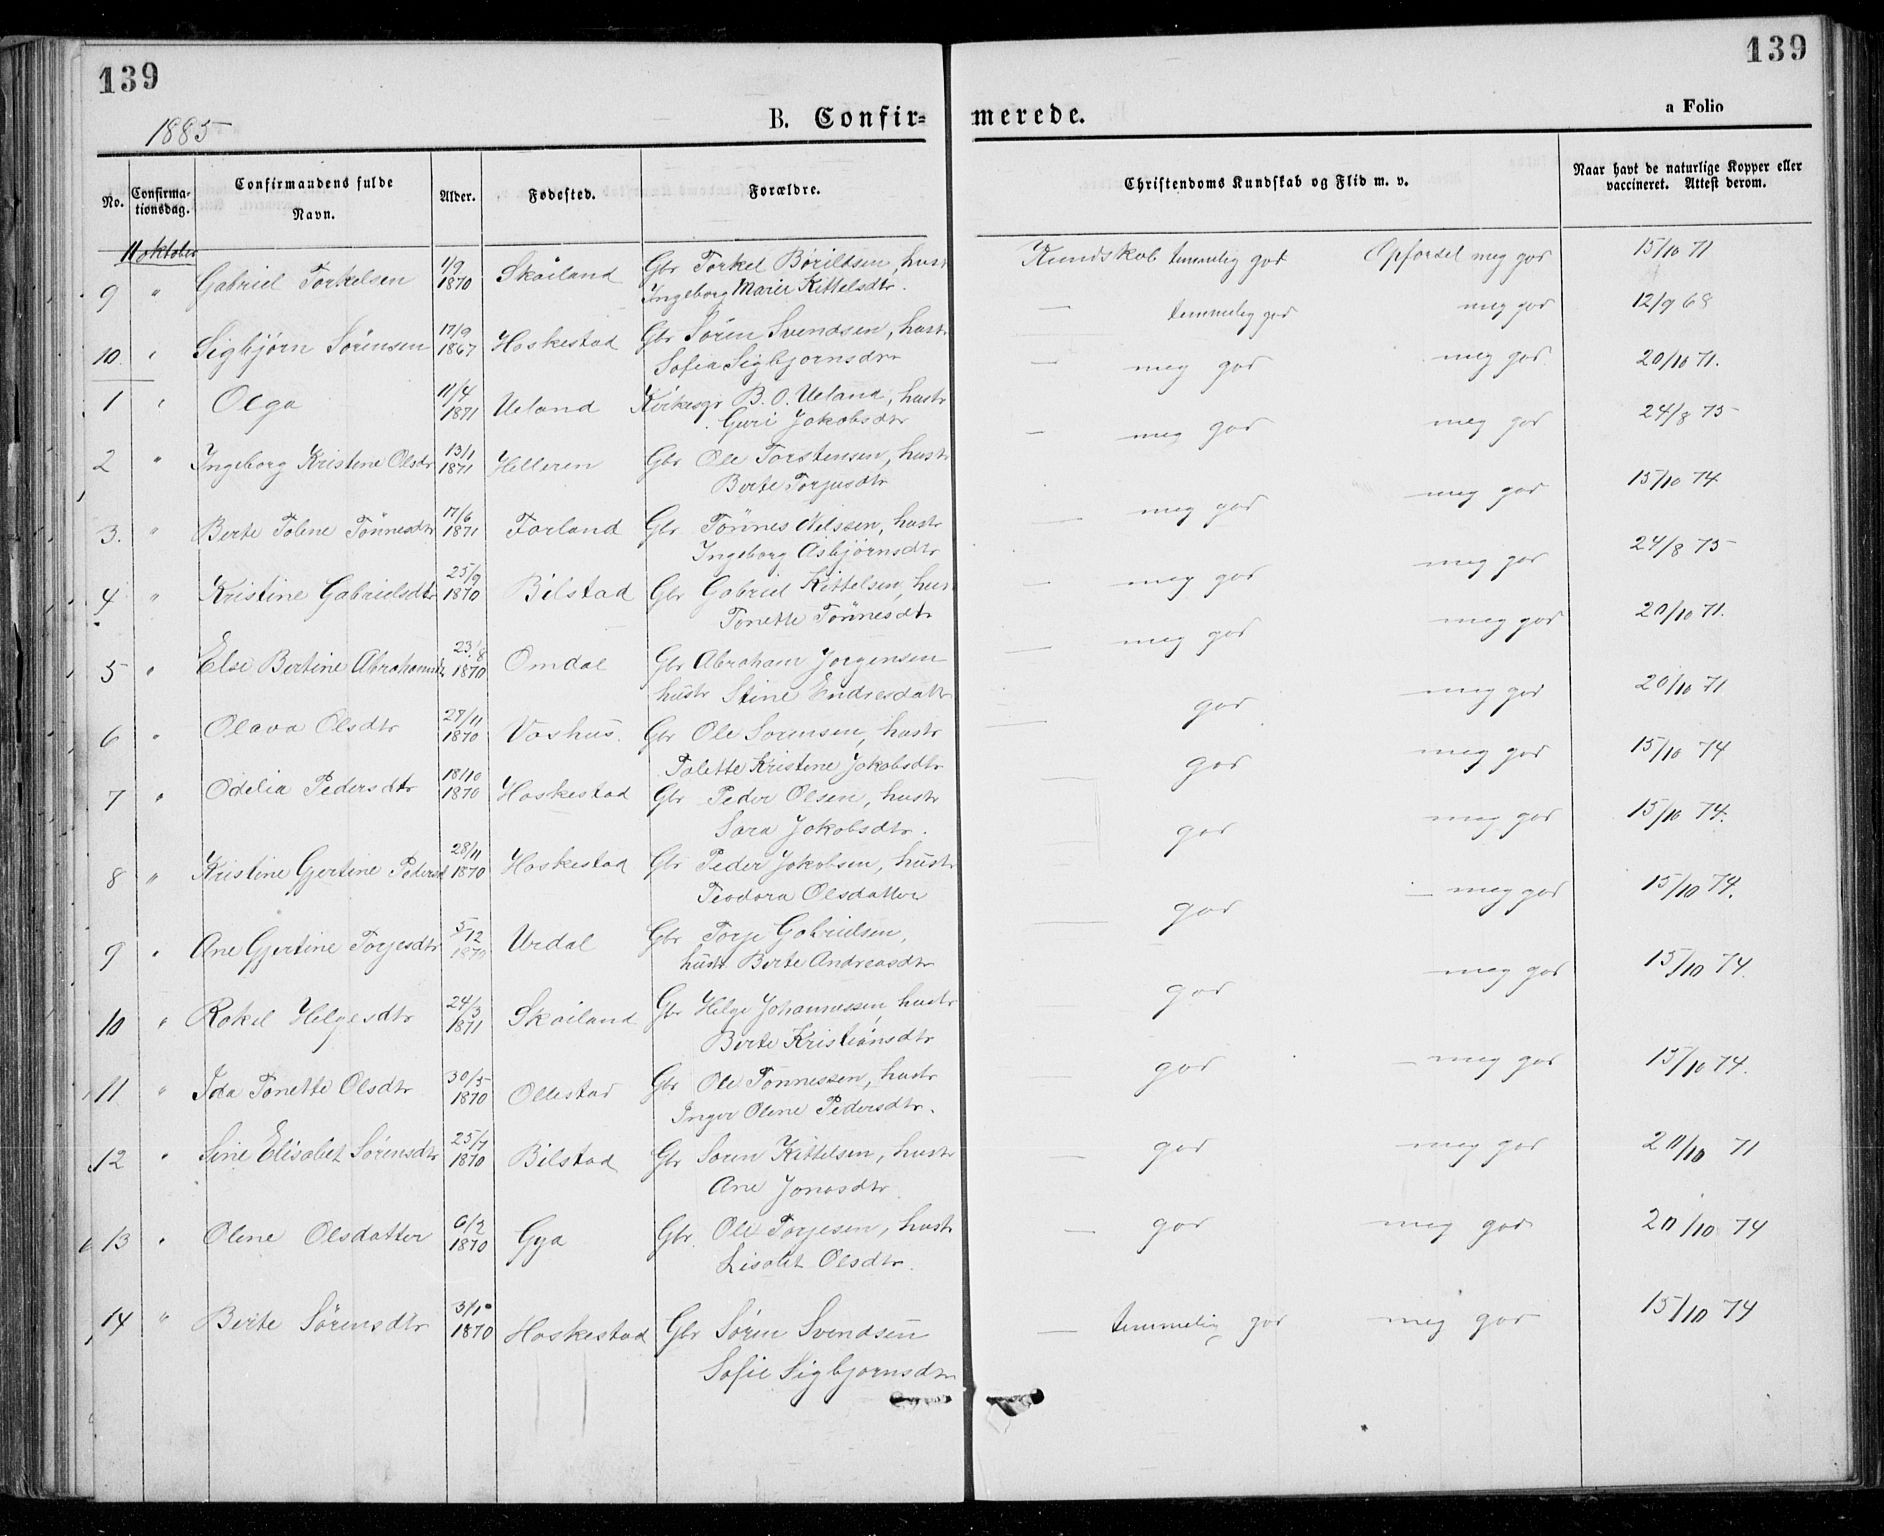 139
139
1885
B. Confir-
merede.
a Folio
No.
Confirma-
tionsdag.
Confirmandens fulde
Navn.
Alder.
Fødested.
Forældre.
Christendoms Kundskab og Flid m. v.
Naar havt de naturlige Kopper eller
vaccineret. Attest derom.
11 oktober
9 " Gabriel Torkelsen 1/9 1870 Skåiland Gbr Torkel Börildsen, hustr Kundskab temmelig god Opførsel meg god 15/10 71
Ingeborg Marie Kittelsdtr.
10 " Sigbjørn Sørensen 17/9 1867 Haskestad Gbr Søren Svendsen, hustr — temmelig god meg god 12/9 68
Sofia Sigbjørnsdtr
1 " Olga 11/4 1871 Ueland Kirkesgr B. O. Ueland, hustr — meg god meg god 20/10 71.
Guri Jakobsdtr
2 " Ingeborg Kristine Olsdtr 13/1 1871 Helleren Gbr Ole Torstensen, hustr — meg god meg god 24/8 75
Berte Torjusdtr
3. " Berte Tolene Tønnesdtr 17/6 1871 Førland Gbr Tønnes Nilssen, hustr — meg god meg god 15/10 74
Ingeborg Asbjørnsdtr
4 " Kristine Gabrielsdtr 25/9 1870 Bilstad Gbr Gabriel Kittelsen, hustr — meg god meg god 24/8 75
Tonette Tönnesdtr
5 " Else Bertine Abrahamsdtr 23/8 1870 Omdal Gbr Abraham Jørgensen — meg god meg god 20/10 71.
hustr Stine Endresdatr
6 " Olava Olsdtr 27/11 1870 Vashus. Gbr Ole Sørensen, hustr — god meg god 20/10 71
Tolette Kristine Jakobsdtr
7 " Odelia Pedersdtr 18/10 1870 Haskestad Gbr Peder Olsen, hustr — god meg god 15/10 74
Sara Jakobsdtr.
8 " Kristine Gjertine Pedersd 28/11 1870 Haskestad Gbr Peder Jakobsen, hustr — god meg god 15/10 74.
Teodora Olsdatter
9 " Ane Gjertine Torjesdtr 5/12 1870 Urdal Gbr Torje Gabrielsen, — god — meg god 15/10 74.
hustr Berte Andreasdtr
10 " Rakel Helgesdtr 24/3 1871 Skåiland Gbr Helge Johannessen, hustr — god meg god 15/10 74.
Berte Kristiansdtr
11 " Ida Tonette Olsdtr 30/5 1870 Ollestad Gbr Ole Tønnessen, hustr — god — meg god 15/10 74.
Inger Olene Pedersdtr.
12 " Sine Elisabet Sørensdtr 25/7 1870 Bilstad Gbr Søren Kittelsen, hustr — god meg god 20/10 71
Ane Jonasdtr
13 " Olene Olsdatter 6/2 1870 Gya Gbr. Ole Torjesen, hustr — god meg god 20/10 74
Lisabet Olsdtr.
14 " Berte Sørensdtr 3/10 1870 Haskestad Gbr Søren Svendsen — temmelig god meg god 15/10 74
Sofie Sigbjørnsdtr